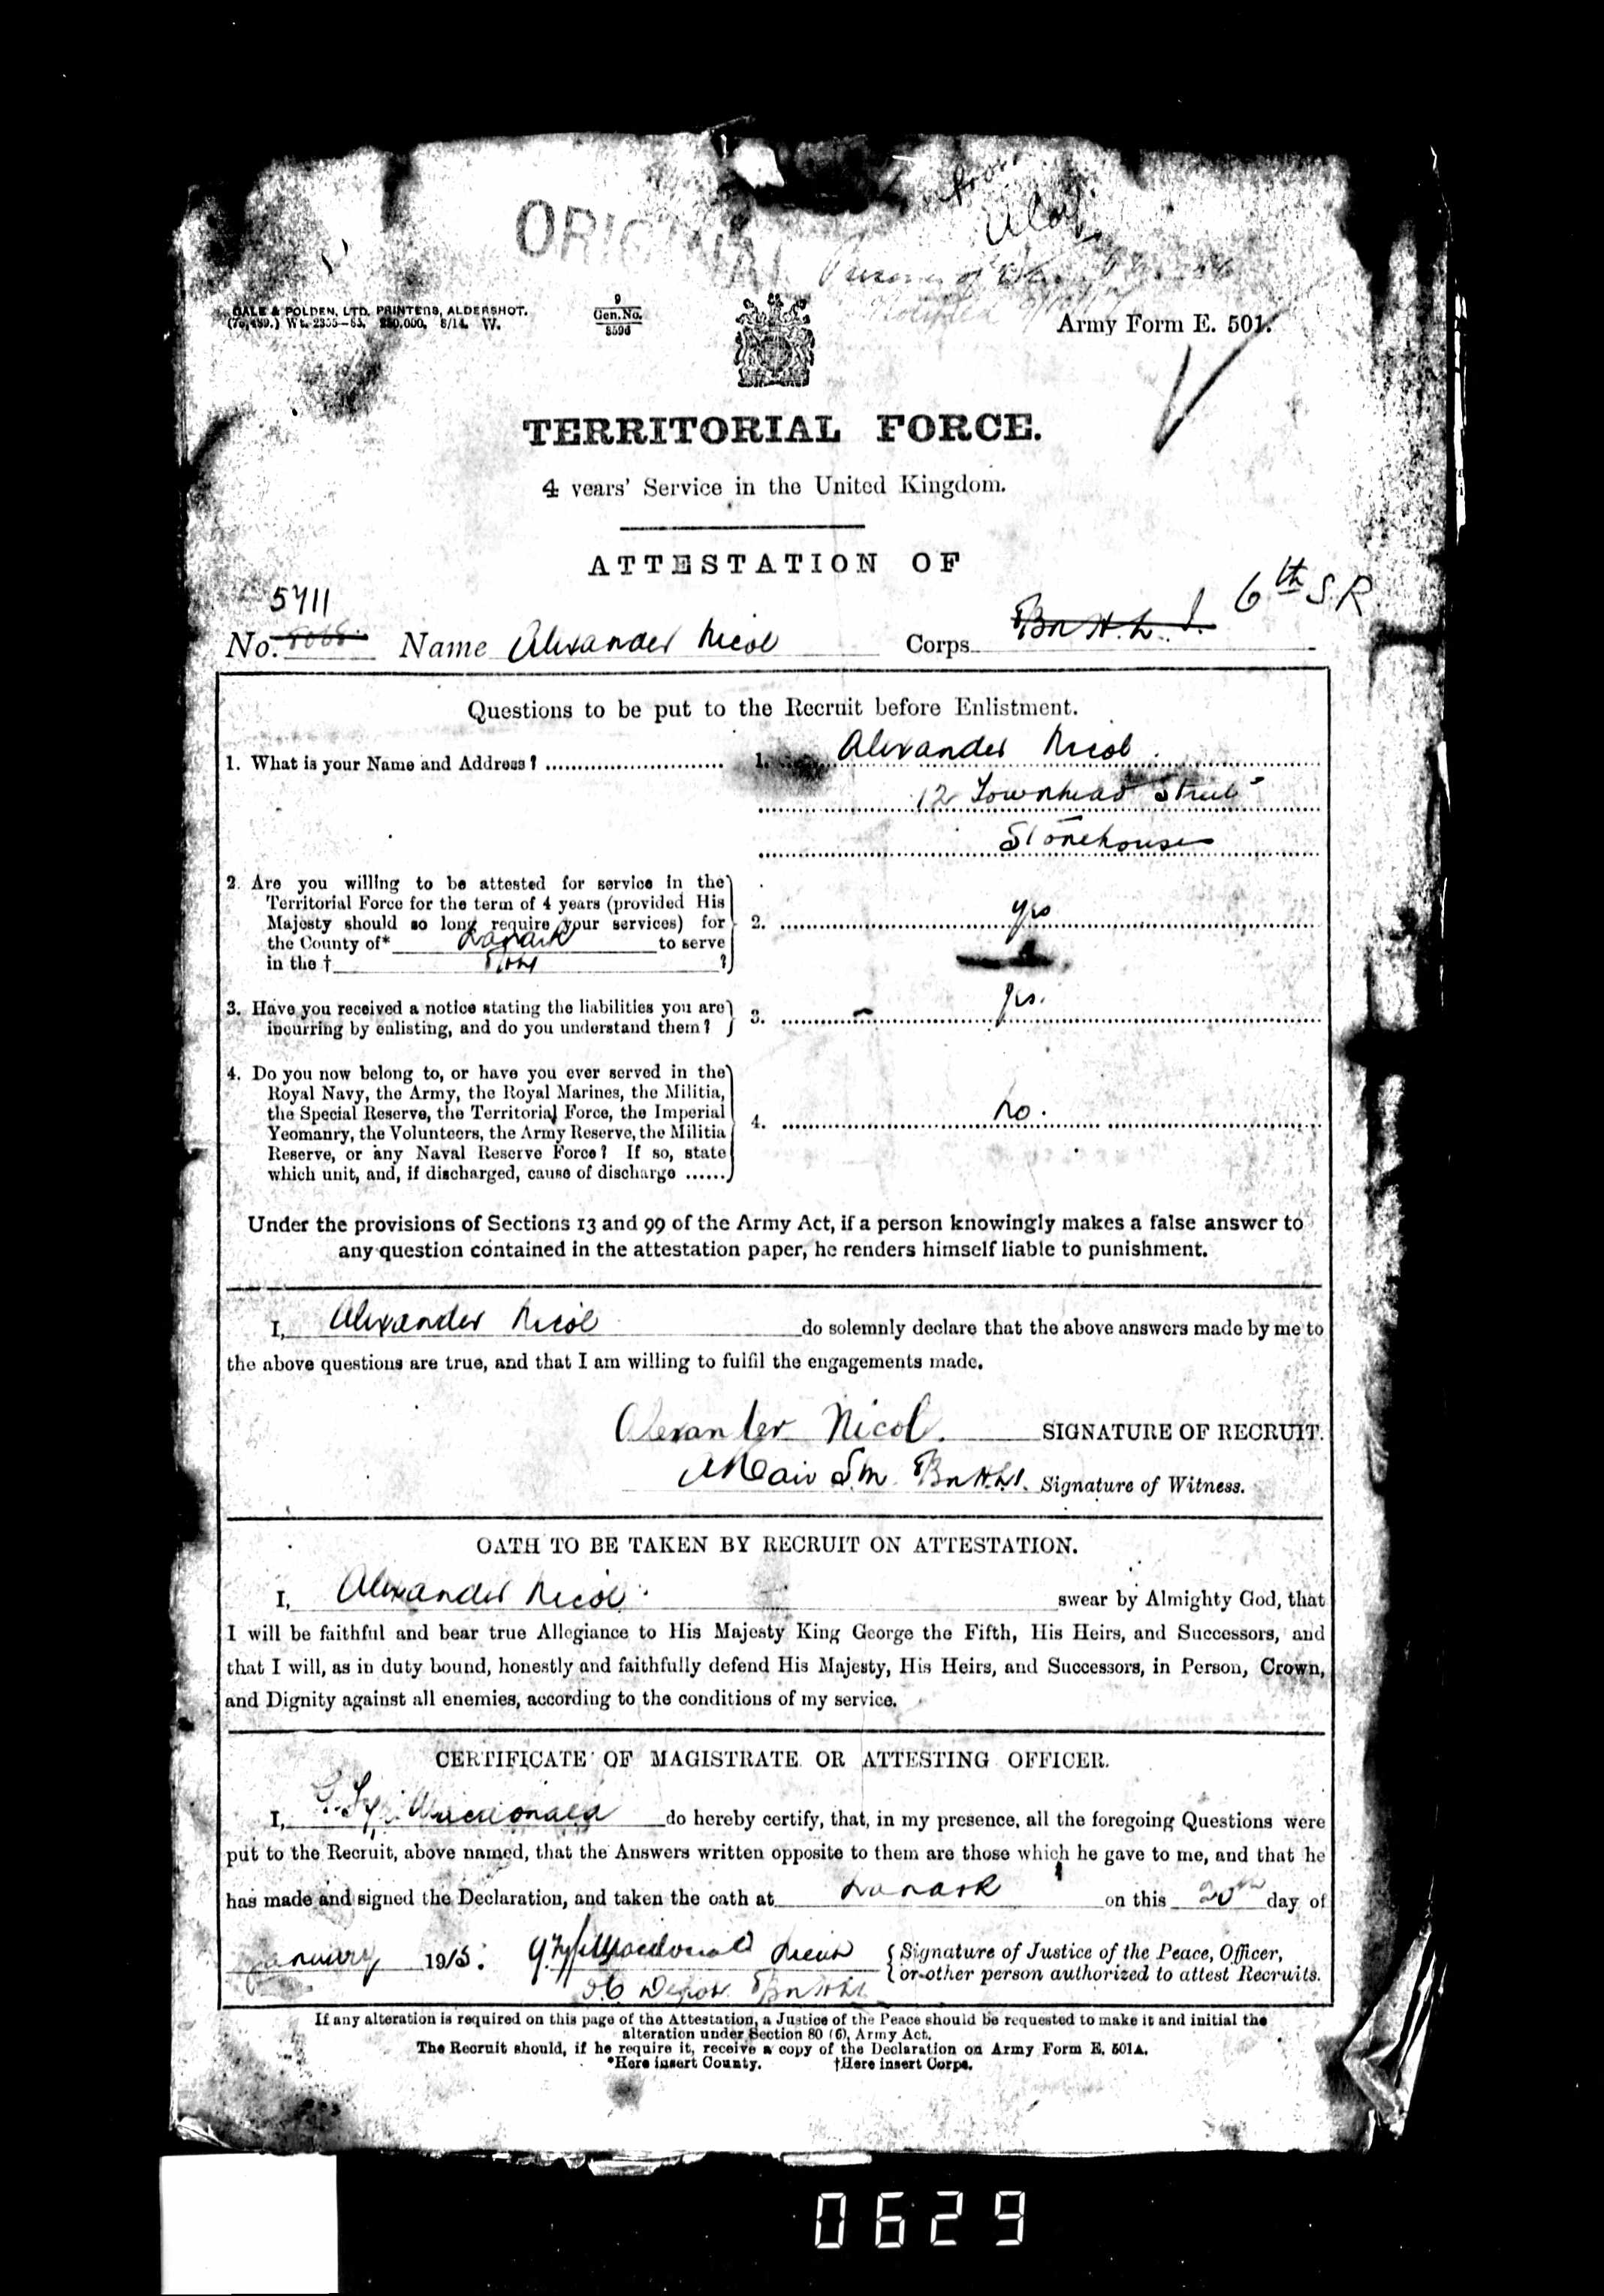 ORIGINAL
Prisoner of War
GALE & POLDEN, LTD. PRINTERS, ALDERSHOT.
Wt. 2355—83. 250,000. 8/14. W.
9
Gen. No.
8596
Army Form E. 501.
TERRITORIAL FORCE.
4 years' Service in the United Kingdom.
ATTESTATION OF
5711 6th S.R
No. Name Alexander Nicol Corps
Questions to be put to the Recruit before Enlistment.
1. What is your Name and Address? 1. Alexander Nicol
12 Townhead Street
Stonehouse
2. Are you willing to be attested for service in the
Territorial Force for the term of 4 years (provided His
Majesty should so long require your services) for 2. yes
the County of* Lanark to serve
in the † ?
3. Have you received a notice stating the liabilities you are 3. yes.
incurring by enlisting, and do you understand them?
4. Do you now belong to, or have you ever served in the
Royal Navy, the Army, the Royal Marines, the Militia,
the Special Reserve, the Territorial Force, the Imperial 4. no.
Yeomanry, the Volunteers, the Army Reserve, the Militia
Reserve, or any Naval Reserve Force? If so, state
which unit, and, if discharged, cause of discharge ......
Under the provisions of Sections 13 and 99 of the Army Act, if a person knowingly makes a false answer to
any question contained in the attestation paper, he renders himself liable to punishment.
I, Alexander Nicol do solemnly declare that the above answers made by me to
the above questions are true, and that I am willing to fulfil the engagements made.
Alexander Nicol. SIGNATURE OF RECRUIT.
Bn H.L.I. Signature of Witness.
OATH TO BE TAKEN BY RECRUIT ON ATTESTATION.
I, Alexander Nicol swear by Almighty God, that
I will be faithful and bear true Allegiance to His Majesty King George the Fifth, His Heirs, and Successors, and
that I will, as in duty bound, honestly and faithfully defend His Majesty, His Heirs, and Successors, in Person, Crown,
and Dignity against all enemies, according to the conditions of my service.
CERTIFICATE OF MAGISTRATE OR ATTESTING OFFICER.
I, Macdonald do hereby certify, that, in my presence, all the foregoing Questions were
put to the Recruit, above named, that the Answers written opposite to them are those which he gave to me, and that he
has made and signed the Declaration, and taken the oath at Lanark on this 20th day of
January 1915. Macdonald Lieut Signature of Justice of the Peace, Officer,
or other person authorized to attest Recruits.
Depot
If any alteration is required on this page of the Attestation, a Justice of the Peace should be requested to make it and initial the
alteration under Section 80 (6), Army Act.
The Recruit should, if he require it, receive a copy of the Declaration on Army Form E. 501A.
*Here insert County. †Here insert Corps.
0629